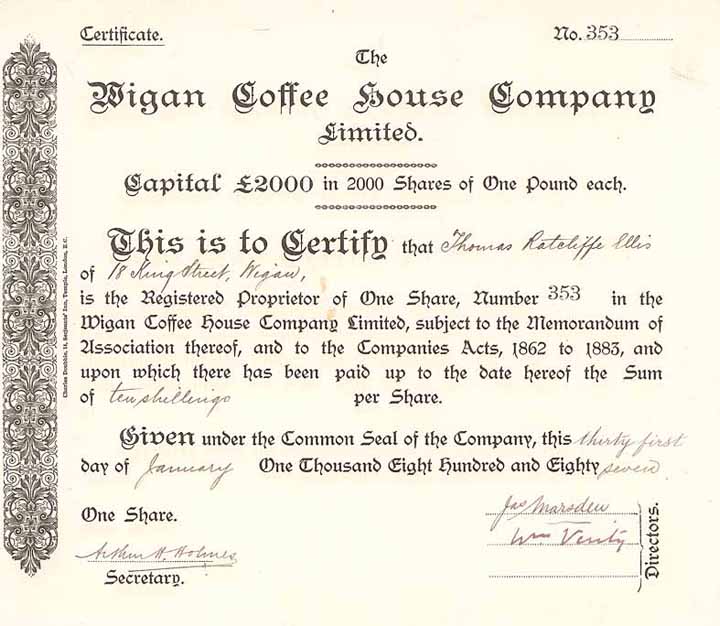 Certificate. No. 353
The
Wigan Coffee House Company
Limited.
Capital £2000 in 2000 Shares of One Pound each.
This is to Certify that Thomas Ratcliffe Ellis
of 18 King Street, Wigan,
is the Registered Proprietor of One Share, Number 353 in the
Wigan Coffee House Company Limited, subject to the Memorandum of
Association thereof, and to the Companies Acts, 1862 to 1883, and
upon which there has been paid up to the date hereof the Sum
of ten shillings per Share.
Given under the Common Seal of the Company, this thirty first
day of January One Thousand Eight Hundred and Eighty seven
One Share.
Jas Marsden
Wm Verity
Directors.
Arthur H. Holmes
Secretary.
Charles Doubble, 14, Serjeants' Inn, Temple, London, E.C.